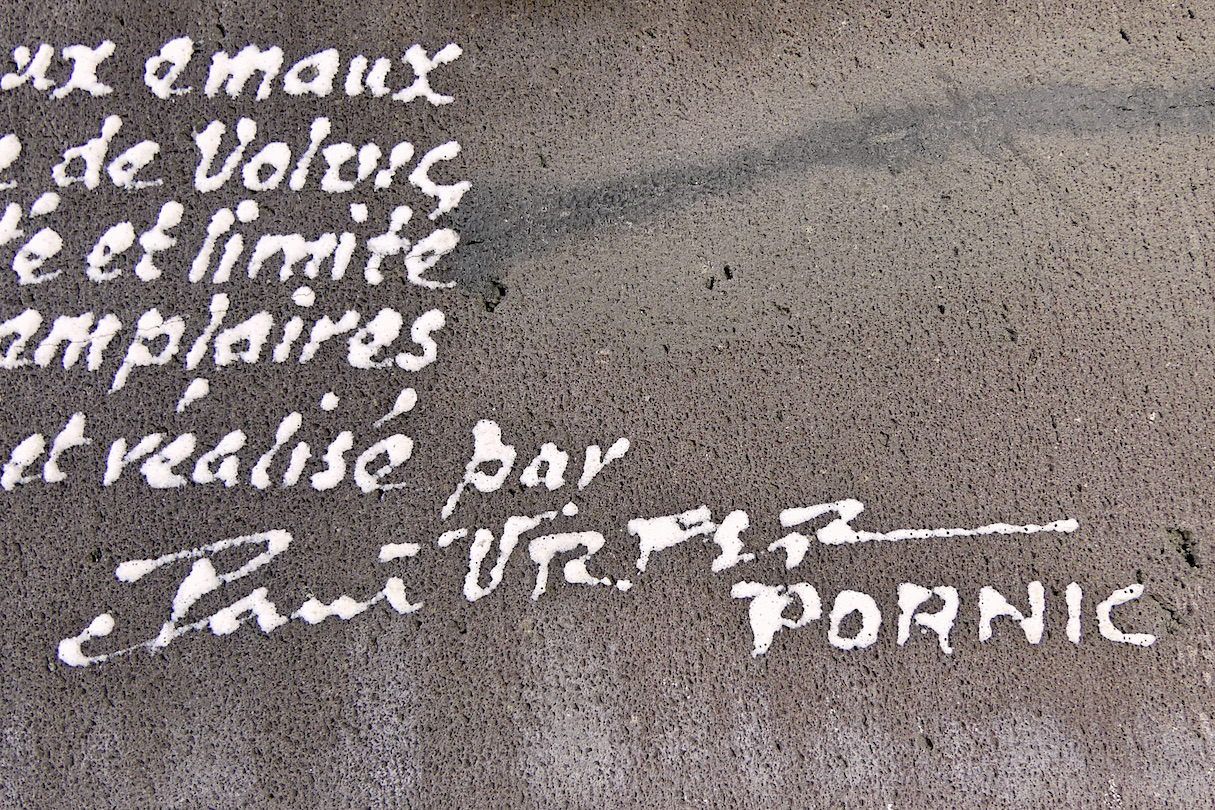 ux emaux
de Volvic
é et limité
amplaires
et réalisé par
PORNIC